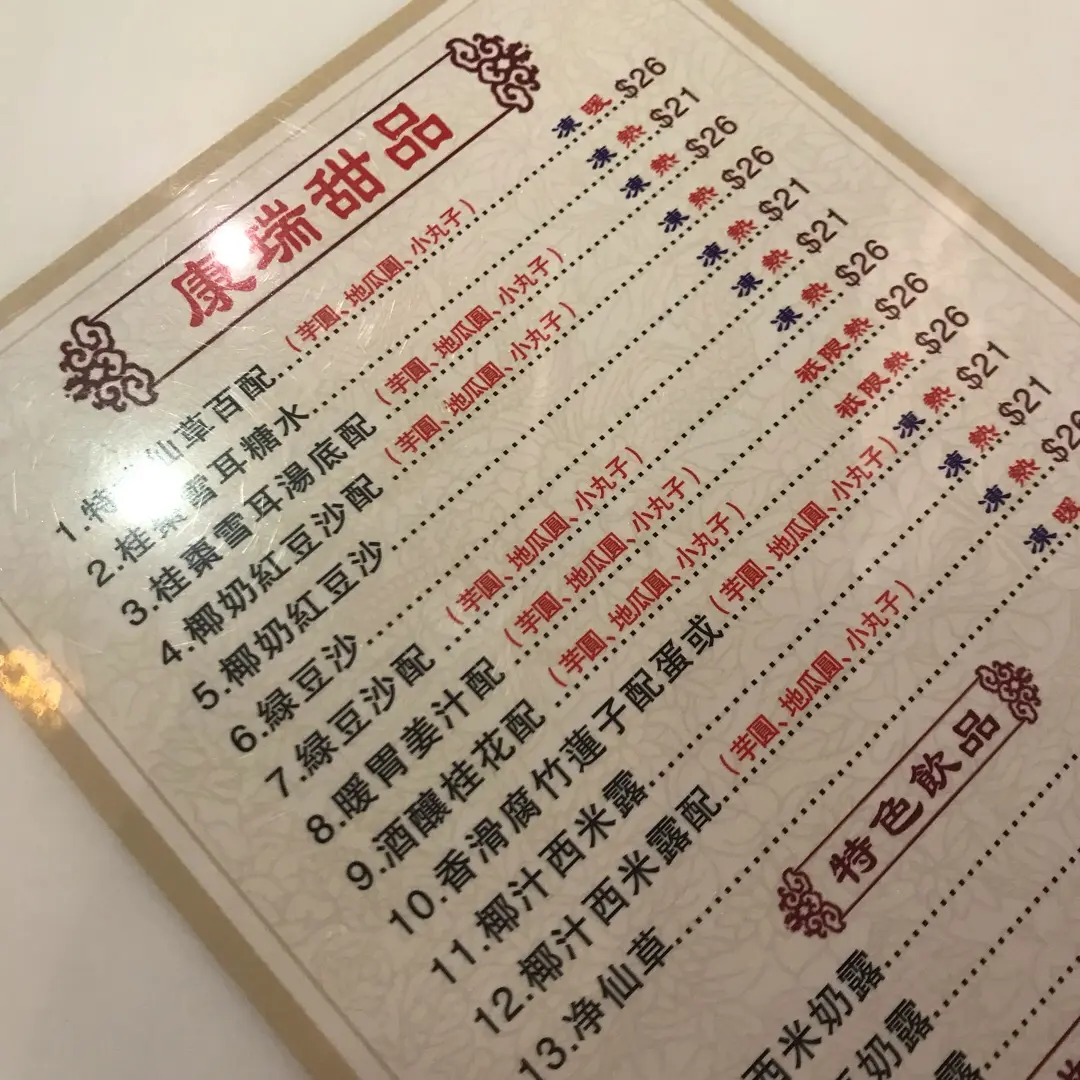 康瑞甜品
1.特 仙草百配 (芋圓、地瓜圓、小丸子) 凍 暖 $26
2.桂棗雪耳糖水 凍 熱 $21
3.桂棗雪耳湯底配 (芋圓、地瓜圓、小丸子) 凍 熱 $26
4.椰奶紅豆沙配 (芋圓、地瓜圓、小丸子) 凍 熱 $26
5.椰奶紅豆沙 凍 熱 $21
6.綠豆沙 凍 熱 $21
7.綠豆沙配 (芋圓、地瓜圓、小丸子) 凍 熱 $26
8.暖胃姜汁配 (芋圓、地瓜圓、小丸子) 祇限熱 $26
9.酒釀桂花配 (芋圓、地瓜圓、小丸子) 祇限熱 $26
10.香滑腐竹蓮子配蛋或 (芋圓、地瓜圓、小丸子) 凍 熱 $21
11.椰汁西米露 凍 熱 $21
12.椰汁西米露配 (芋圓、地瓜圓、小丸子) 凍 熱 $26
13.净仙草 凍 暖
特色飲品
西米奶露
奶露
露